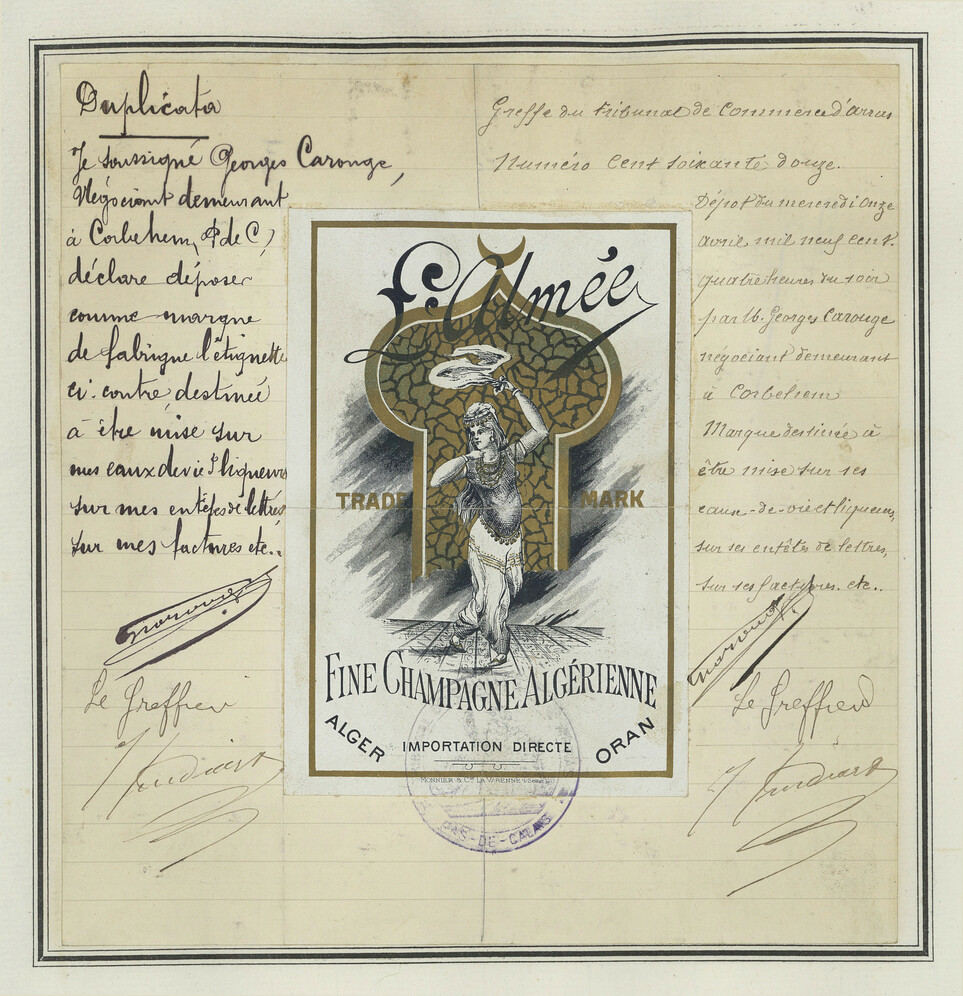 Duplicata
Je soussigné Georges Carouge,
Négociant demeurant
à Corbehem, (P de C)
déclare déposer
comme marque
de fabrique l'étiquette
ci-contre destinée
à être mise sur
mes eaux de vie & liqueurs
sur mes entêtes de lettres
sur mes factures etc..
Le Greffier
Greffe du tribunal de Commerce d'arras
Numéro cent soixante douze.
Dépôt du mercredi onze
avril mil neuf cent.
quatre heures du soir
par M. Georges Carouge
négociant demeurant
à Corbehem
Marque destinée à
être mise sur ses
eaux-de-vie et liqueurs,
sur ses entêtes de lettres,
sur ses factures. etc..
Le Greffier
L'Almée
TRADE MARK
FINE CHAMPAGNE ALGÉRIENNE
ALGER IMPORTATION DIRECTE ORAN
MONNIER & Cie LA VARENNE (Seine)
PAS-DE-CALAIS